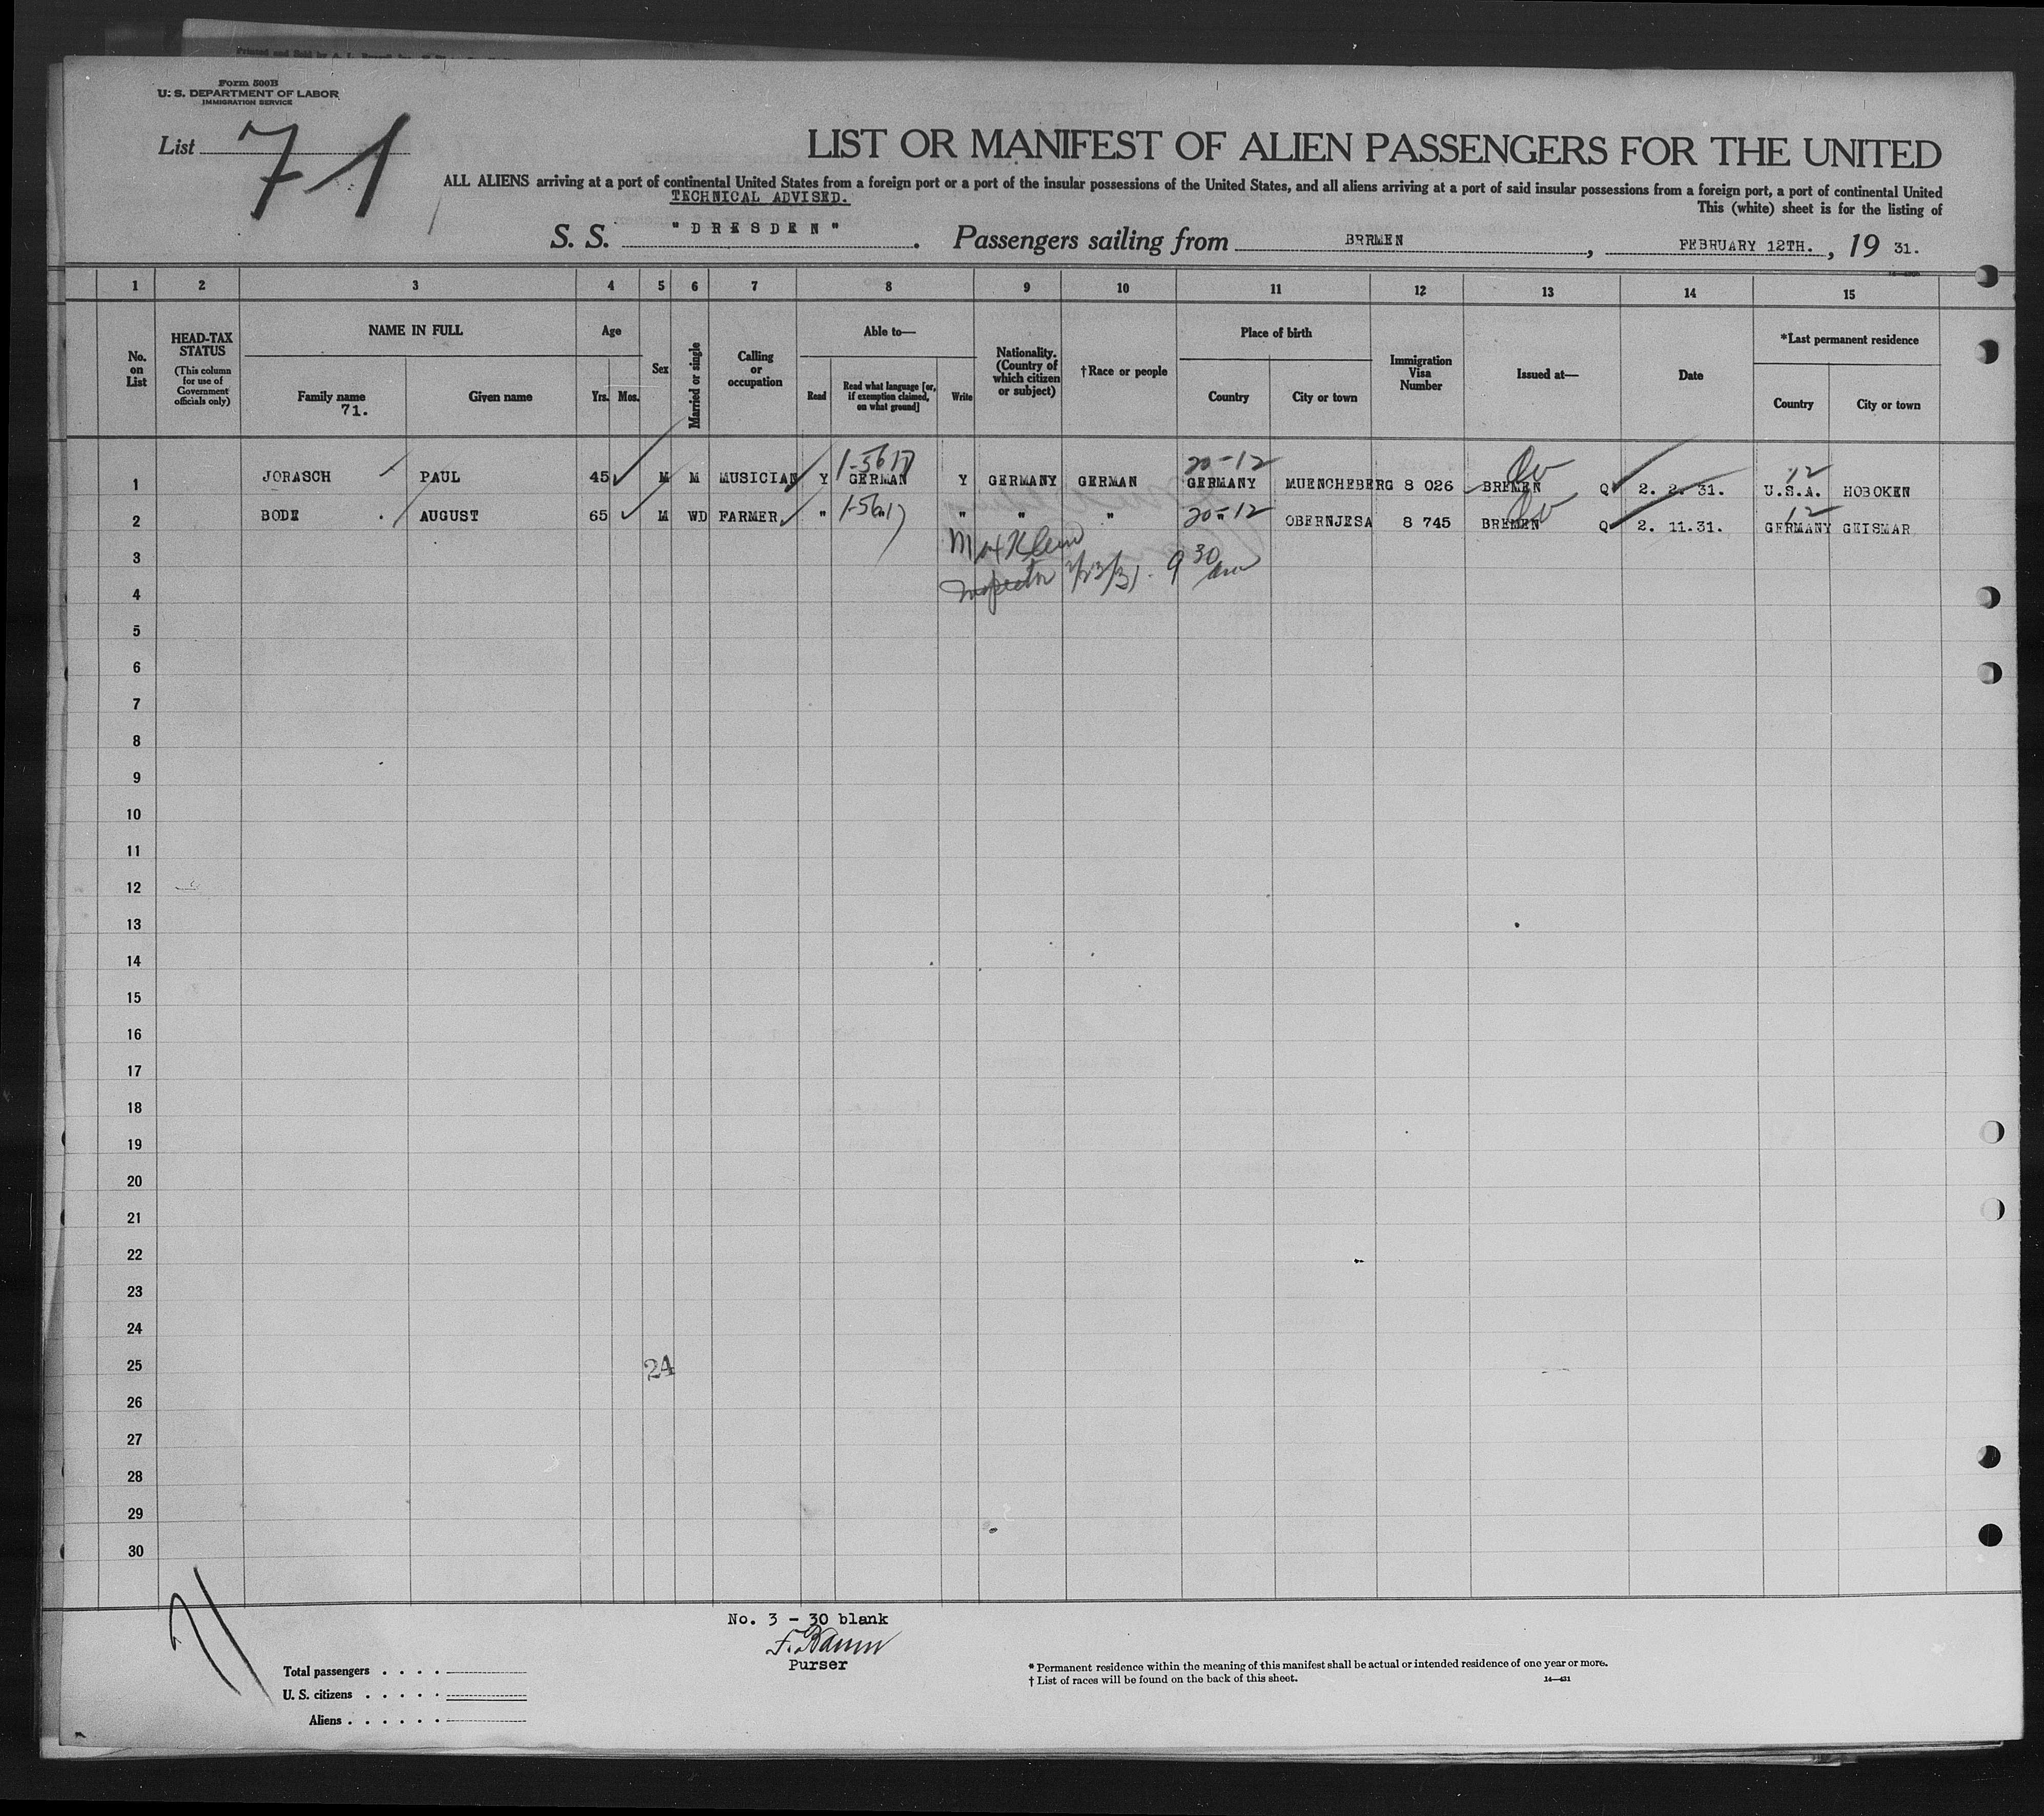 Form 500B
U. S. DEPARTMENT OF LABOR
IMMIGRATION SERVICE
List 71
LIST OR MANIFEST OF ALIEN PASSENGERS FOR THE UNITED
ALL ALIENS arriving at a port of continental United States from a foreign port or a port of the insular possessions of the United States, and all aliens arriving at a port of said insular possessions from a foreign port, a port of continental United
TECHNICAL ADVISED.
This (white) sheet is for the listing of
S. S. "DRESDEN". Passengers sailing from BREMEN, FEBRUARY 12TH., 19 31.
1 2 3 4 5 6 7 8 9 10 11 12 13 14 15
No. on List
HEAD-TAX STATUS
(This column for use of Government officials only)
NAME IN FULL
Family name
71.
Given name
Age
Yrs. Mos.
Sex
Married or single
Calling or occupation
Able to—
Read
Read what language [or, if exemption claimed, on what ground]
Write
Nationality. (Country of which citizen or subject)
†Race or people
Place of birth
Country
City or town
Immigration Visa Number
Issued at—
Date
*Last permanent residence
Country
City or town
1-5617 20-12 12
1 JORASCH PAUL 45 M M MUSICIAN Y GERMAN Y GERMANY GERMAN GERMANY MUENCHEBERG 8 026 BREMEN Q 2. 2. 31. U.S.A. HOBOKEN
1-5617 20-12 12
2 BODE AUGUST 65 M WD FARMER " " " " " OBERNJESA 8 745 BREMEN Q 2. 11.31. GERMANY GEISMAR
3 Max Klein
4 Inspector 2/23/31. 9 30 am
5
6
7
8
9
10
11
12
13
14
15
16
17
18
19
20
21
22
23
24
25 24
26
27
28
29
30
71
No. 3 - 30 blank
F. Baum
Purser
Total passengers . . . .
U. S. citizens . . . . .
Aliens . . . . . .
* Permanent residence within the meaning of this manifest shall be actual or intended residence of one year or more.
† List of races will be found on the back of this sheet.
14—421